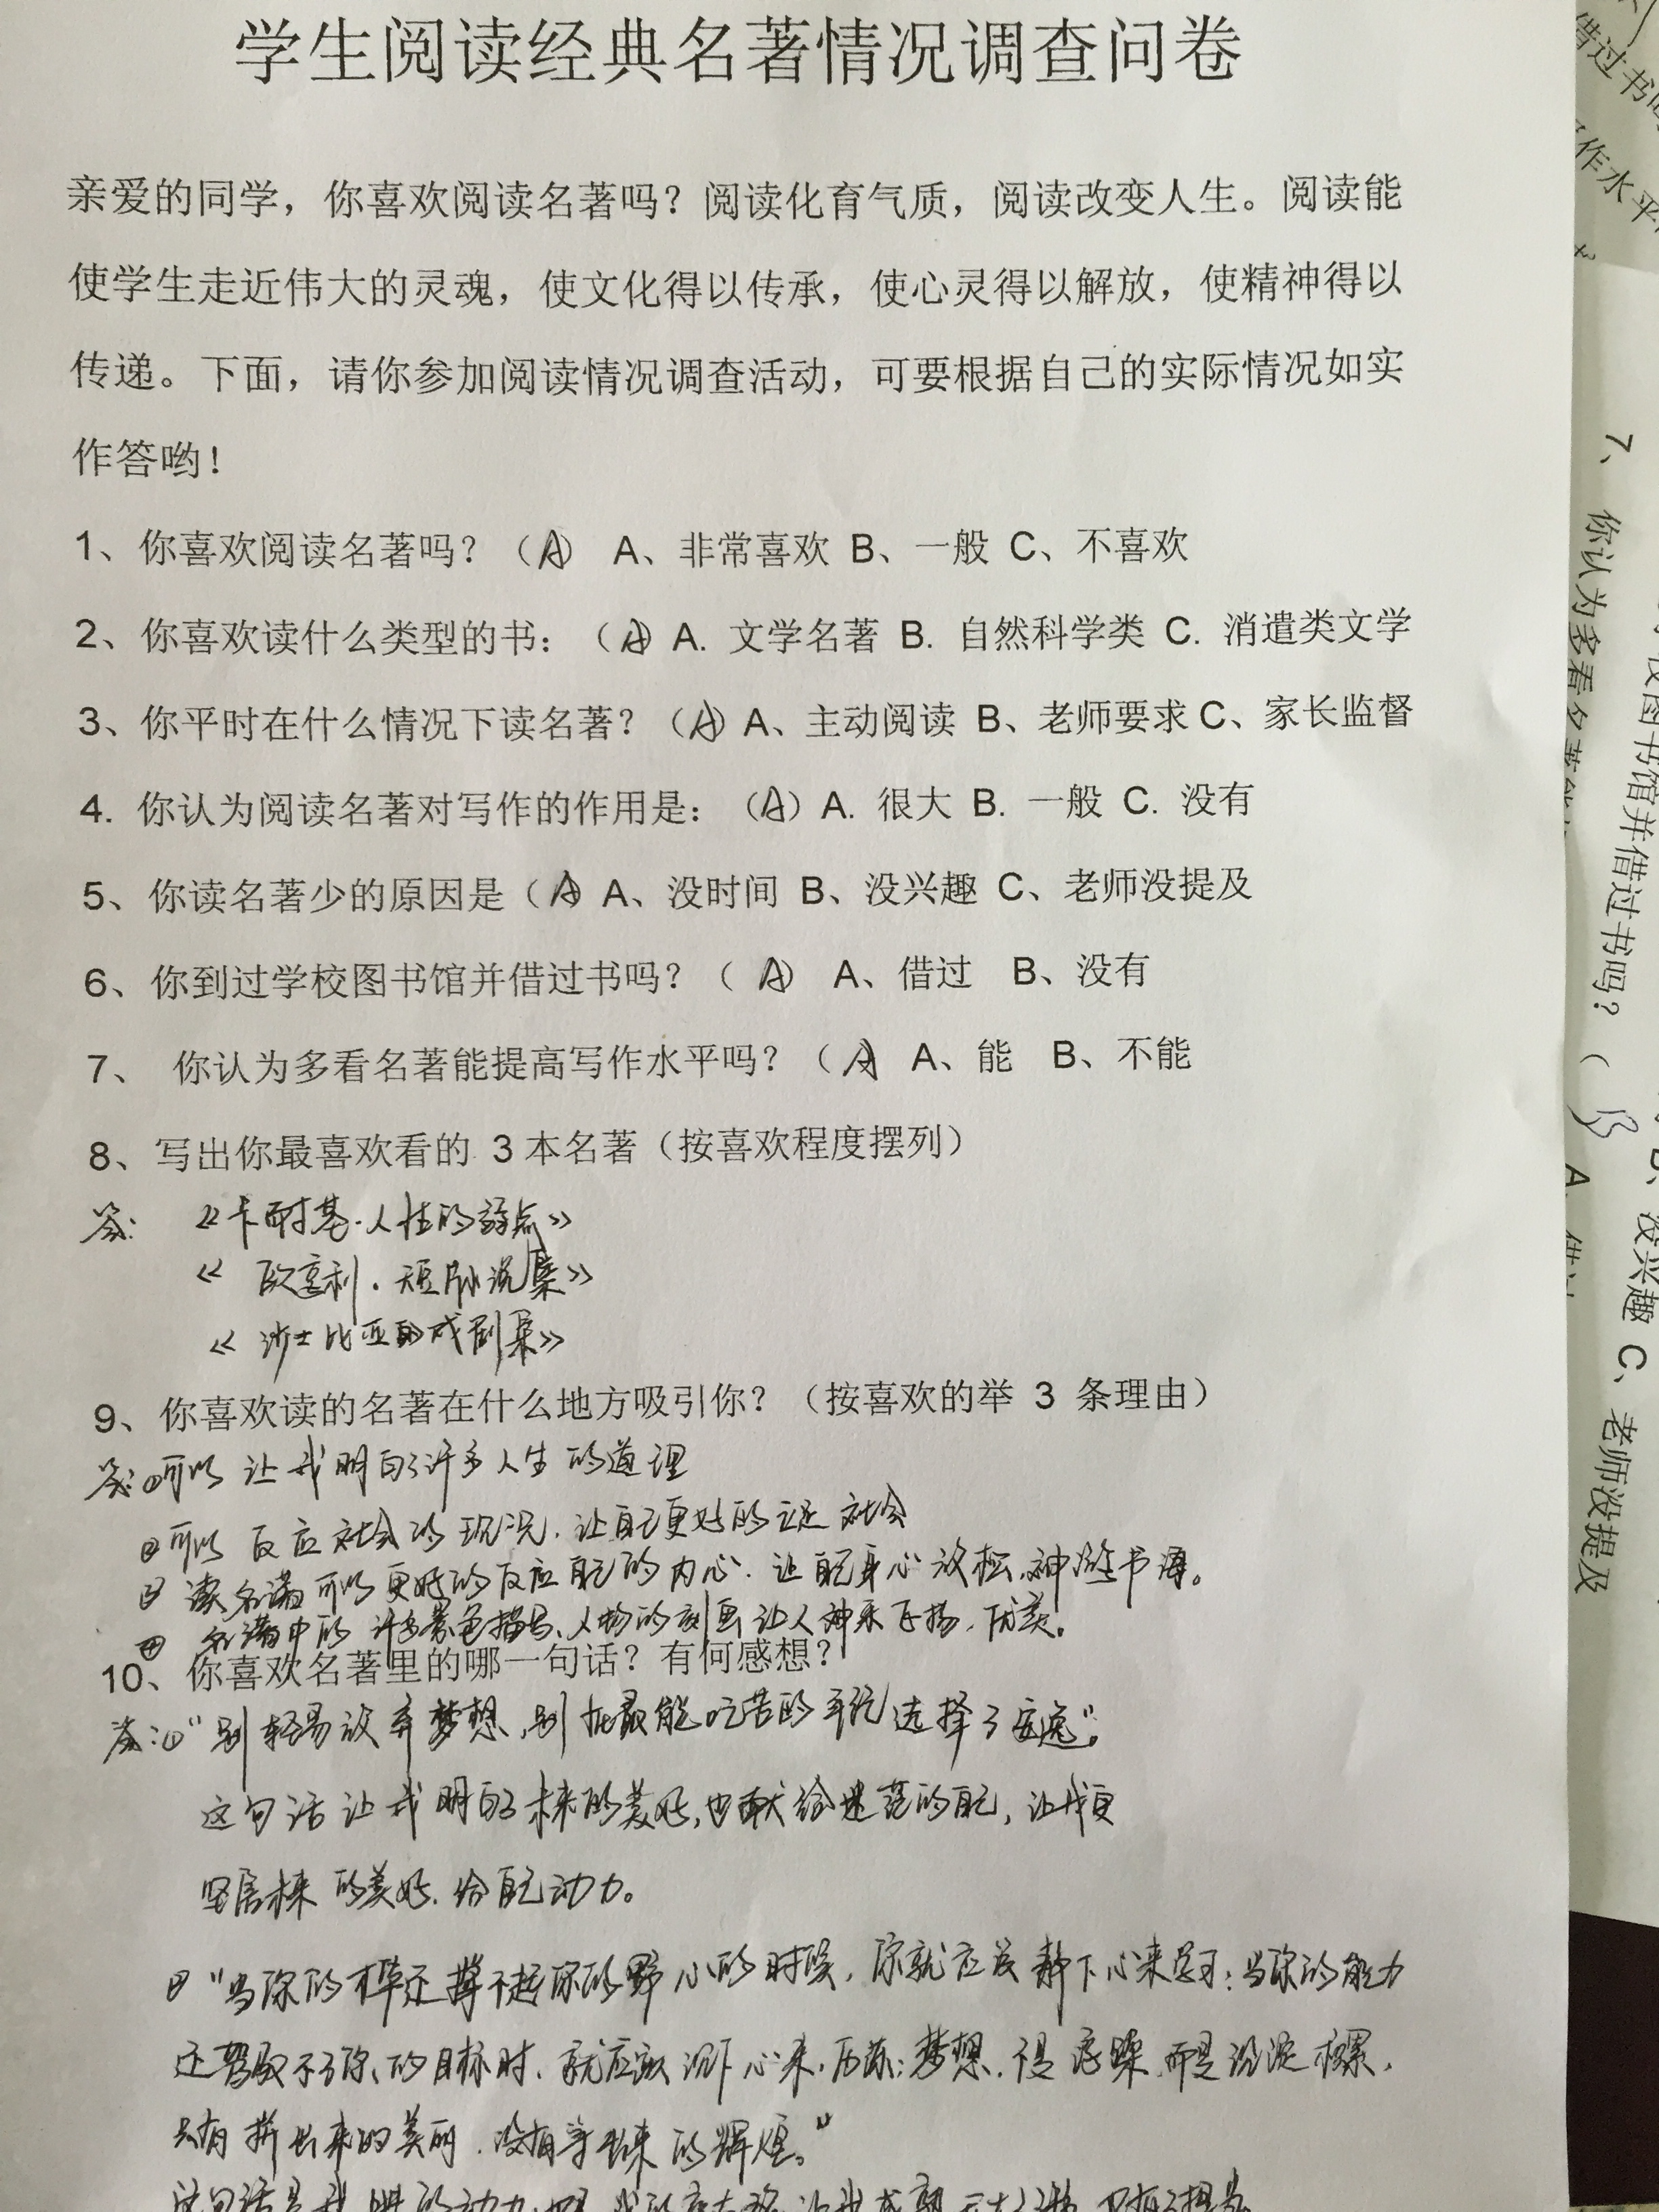 学生阅读经典名著情况调查问卷
亲爱的同学，你喜欢阅读名著吗？阅读化育气质，阅读改变人生。阅读能
使学生走近伟大的灵魂，使文化得以传承，使心灵得以解放，使精神得以
传递。下面，请你参加阅读情况调查活动，可要根据自己的实际情况如实
作答哟！
1、你喜欢阅读名著吗？（A） A、非常喜欢 B、一般 C、不喜欢
2、你喜欢读什么类型的书：（A）A. 文学名著 B. 自然科学类 C. 消遣类文学
3、你平时在什么情况下读名著？（A）A、主动阅读 B、老师要求 C、家长监督
4. 你认为阅读名著对写作的作用是：（A）A. 很大 B. 一般 C. 没有
5、你读名著少的原因是（A A、没时间 B、没兴趣 C、老师没提及
6、你到过学校图书馆并借过书吗？（A） A、借过 B、没有
7、 你认为多看名著能提高写作水平吗？（A A、能 B、不能
8、写出你最喜欢看的 3 本名著（按喜欢程度摆列）
答： 《卡耐基·人性的弱点》
《欧亨利·短篇小说集》
《沙士比亚的戏剧集》
9、你喜欢读的名著在什么地方吸引你？（按喜欢的举 3 条理由）
答：①可以让我明白了许多人生的道理
②可以反应社会的现况，让自己更好的立足社会
③读名著可以更好的反应自己的内心，让自己身心放松，神游书海。
④名著中的许多景色描写、人物的刻画让人神采飞扬，优美。
10、你喜欢名著里的哪一句话？有何感想？
答：①"别轻易放弃梦想，别在最能吃苦的年纪选择了安逸"。
这句话让我明白了未来的美好，也献给迷茫的自己，让我更
坚信未来的美好，给自己动力。
②"当你的才华还撑不起你的野心的时候，你就应该静下心来学习；当你的能力
还驾驭不了你的目标时，就应该沉下心来，历练；梦想，不是浮躁，而是沉淀积累，
只有拼出来的美丽，没有等出来的辉煌。"
这句话是我
借过书吗
作水平
7、 你认为多看名著能
图书馆并借过书吗？（B A
没兴趣 C、老师没提及